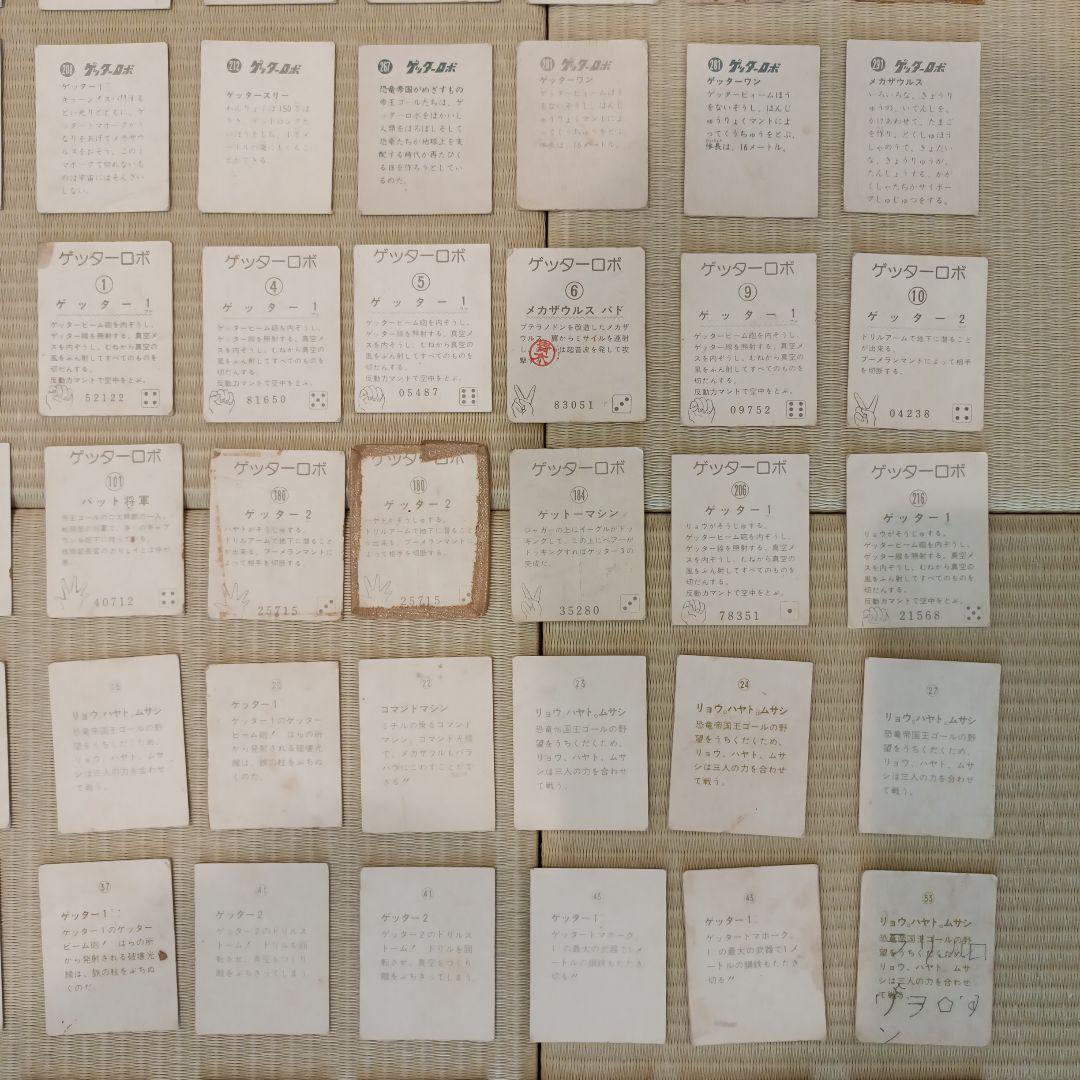 201 ゲッターロボ
ゲッター1
キューン!スパ!!する
どい光りとともに、ゲ
ッタートマホークがう
なりをあげてメカザウ
ルスをおそう。このト
マホークで切れないも
のは宇宙にはそんざい
しない。
212 ゲッターロボ
ゲッタースリー
ができる。
267 ゲッターロボ
恐竜帝国がめざすもの
帝王ゴールたちは、ゲ
ッターロボをはかいし
人類をほろぼしそして
恐竜たちが地球上を支
配する時代が再たびく
る日を作ろうとしてい
るのだ。
ゲッターロボ
ゲッターワン
ゲッタービームほう
をないぞうし、はんじ
ゅうりょくマントによ
ってくうちゅうをとぶ。
体長は、16メートル。
281 ゲッターロボ
ゲッターワン
ゲッタービィームほう
をないぞうし、はんじ
ゅうりょくマントによ
ってくうちゅうをとぶ。
体長は、16メートル。
291 ゲッターロボ
メカザウルス
いろいろな、きょうりゅ
うの、いでんしを、
かけあわせて、たまご
を作り、どくしゅほう
しゃのうで、きょだい
な、きょうりゅうが、
たんじょうする、かが
くしゃたちがサイボー
グしゅじゅつをする。
ゲッターロボ
1
ゲッター 1
ゲッタービーム砲を内ぞうし、
ゲッター線を照射する。真空メ
スを内ぞうし、むねから真空の
風をふん射してすべてのものを
切だんする。
反動力マントで空中をとぶ。
52122
ゲッターロボ
4
ゲッター 1
ゲッタービーム砲を内ぞうし、
ゲッター線を照射する。真空メ
スを内ぞうし、むねから真空の
風をふん射してすべてのものを
切だんする。
反動力マントで空中をとぶ。
81650
ゲッターロボ
5
ゲッター 1
ゲッタービーム砲を内ぞうし、
ゲッター線を照射する。真空メ
スを内ぞうし、むねから真空の
風をふん射してすべてのものを
切だんする。
反動力マントで空中をとぶ。
05487
ゲッターロボ
6
メカザウルス バド
プテラノドンを改造したメカザ
ウルス 翼からミサイルを連射
し は超音波を発して攻
撃
83051
ゲッターロボ
9
ゲッター 1
ゲッタービーム砲を内ぞうし、
ゲッター線を照射する。真空メ
スを内ぞうし、むねから真空の
風をふん射してすべてのものを
切だんする。
反動力マントで空中をとぶ。
09752
ゲッターロボ
10
ゲッター 2
ドリルアームで地下に潜ること
が出来る。
ブーメランマントによって相手
を切断する。
04238
ゲッターロボ
101
バット将軍
帝王ゴールの二大幹部の一人。
40712
ゲッターロボ
180
ゲッター2
ハヤトがそうじゅする。
ドリルアームで地下に潜ること
が出来る。ブーメランマントに
よって相手を切断する。
25715
ゲッターロボ
180
ゲッター2
ハヤトがそうじゅする。
ドリルアームで地下に潜ること
が出来る。ブーメランマントに
よって相手を切断する。
25715
ゲッターロボ
184
ゲットーマシン
ジャガーの上にイーグルがドッ
キングして、この上にベアーが
ドッキングすればゲッター3の
完成だ。
35280
ゲッターロボ
206
ゲッター1
リョウがそうじゅする。
ゲッタービーム砲を内ぞうし、
ゲッター線を照射する。真空メ
スを内ぞうし、むねから真空の
風をふん射してすべてのものを
切だんする。
反動力マントで空中をとぶ。
78351
ゲッターロボ
216
ゲッター1
リョウがそうじゅする。
ゲッタービーム砲を内ぞうし、
ゲッター線を照射する。真空メ
スを内ぞうし、むねから真空の
風をふん射してすべてのものを
切だんする。
反動力マントで空中をとぶ。
21568
リョウ。ハヤト。ムサシ
恐竜帝国王ゴールの野
望をうちくだくため、
リョウ、ハヤト、ムサ
シは三人の力を合わせ
て戦う。
20
ゲッター1
ゲッター1のゲッター
ビーム砲! はらの所
から発射される破壊光
線は、鉄の柱をぶちぬ
くのだ。
22
コマンドマシン
ミチルの乗るコマンド
マシン。コマンド光線
で、メカザウルもバラ
バラにこわすことがで
きる!!
23
リョウ。ハヤト。ムサシ
恐竜帝国王ゴールの野
望をうちくだくため、
リョウ、ハヤト、ムサ
シは三人の力を合わせ
て戦う。
24
リョウ。ハヤト。ムサシ
恐竜帝国王ゴールの野
望をうちくだくため、
リョウ、ハヤト、ムサ
シは三人の力を合わせ
て戦う。
27
リョウ。ハヤト。ムサシ
恐竜帝国王ゴールの野
望をうちくだくため、
リョウ、ハヤト、ムサ
シは三人の力を合わせ
て戦う。
37
ゲッター1
ゲッター1のゲッター
ビーム砲! はらの所
から発射される破壊光
線は、鉄の柱をぶちぬ
くのだ。
41
ゲッター2
ゲッター2のドリルス
トーム! ドリルを回
転させ、真空をつくり
敵をぶちきってしまう。
41
ゲッター2
ゲッター2のドリルス
トーム! ドリルを回
転させ、真空をつくり
敵をぶちきってしまう。
ゲッター1
ゲッタートマホーク。
1の最大の武器で1メ
ートルの鋼鉄もたたき
切る!!
ゲッター1
ゲッタートマホーク。
1の最大の武器で1メ
ートルの鋼鉄もたたき
切る!!
53
リョウ。ハヤト。ムサシ
恐竜帝国王ゴールの野
望をうちくだくため、
リョウ、ハヤト、ムサ
シは三人の力を合わせ
て戦う。